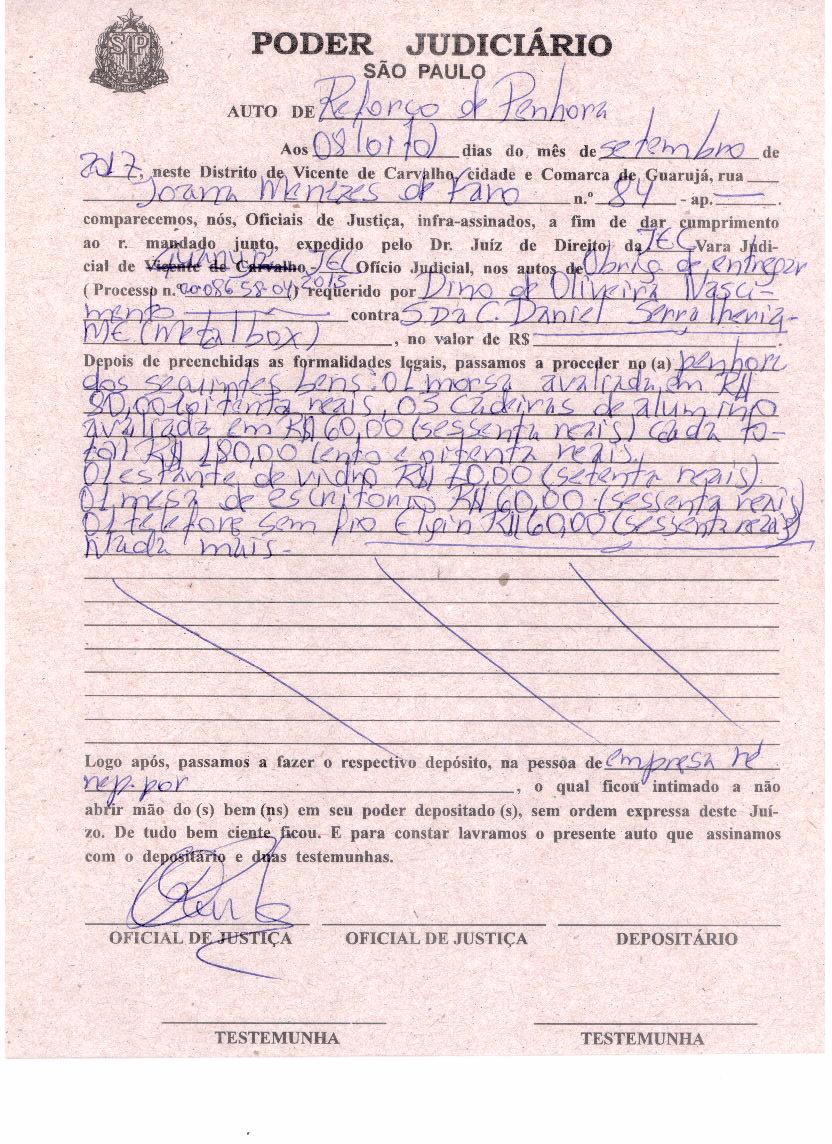 PODER JUDICIÁRIO
SÃO PAULO
AUTO DE Reforço de Penhora
Aos 08 (oito) dias do mês de setembro de
2017, neste Distrito de Vicente de Carvalho, cidade e Comarca de Guarujá, rua
Joana Menezes de Faro n.º 84 - ap.
comparecemos, nós, Oficiais de Justiça, infra-assinados, a fim de dar cumprimento
ao r. mandado junto, expedido pelo Dr. Juíz de Direito da JEC Vara Judi-
cial de Vicente de Carvalho Guarujá, JEC Ofício Judicial, nos autos de Obrig de entregar
( Processo n.º 2015) requerido por Dino de Oliveira Nasci-
mento contra S. Da C. Daniel Serralheria-
ME (Metalbox), no valor de R$
Depois de preenchidas as formalidades legais, passamos a proceder no (a) penhora
dos seguintes bens: 01 morsa avaliada em R$
80,00 (oitenta reais, 03 cadeiras de aluminio
avaliada em R$ 60,00 (sessenta reais) cada to-
tal R$ 180,00 cento e oitenta reais,
01 estante de vidro R$ 70,00 (setenta reais).
01 mesa de escritório R$ 60,00 (sessenta reais)
01 telefone sem fio Elgin R$ 60,00 (sessenta reais)
Nada mais-
Logo após, passamos a fazer o respectivo depósito, na pessoa de empresa ré
rep. por , o qual ficou intimado a não
abrir mão do (s) bem (ns) em seu poder depositado (s), sem ordem expressa deste Juí-
zo. De tudo bem ciente ficou. E para constar lavramos o presente auto que assinamos
com o depositário e duas testemunhas.
OFICIAL DE JUSTIÇA OFICIAL DE JUSTIÇA DEPOSITÁRIO
TESTEMUNHA TESTEMUNHA